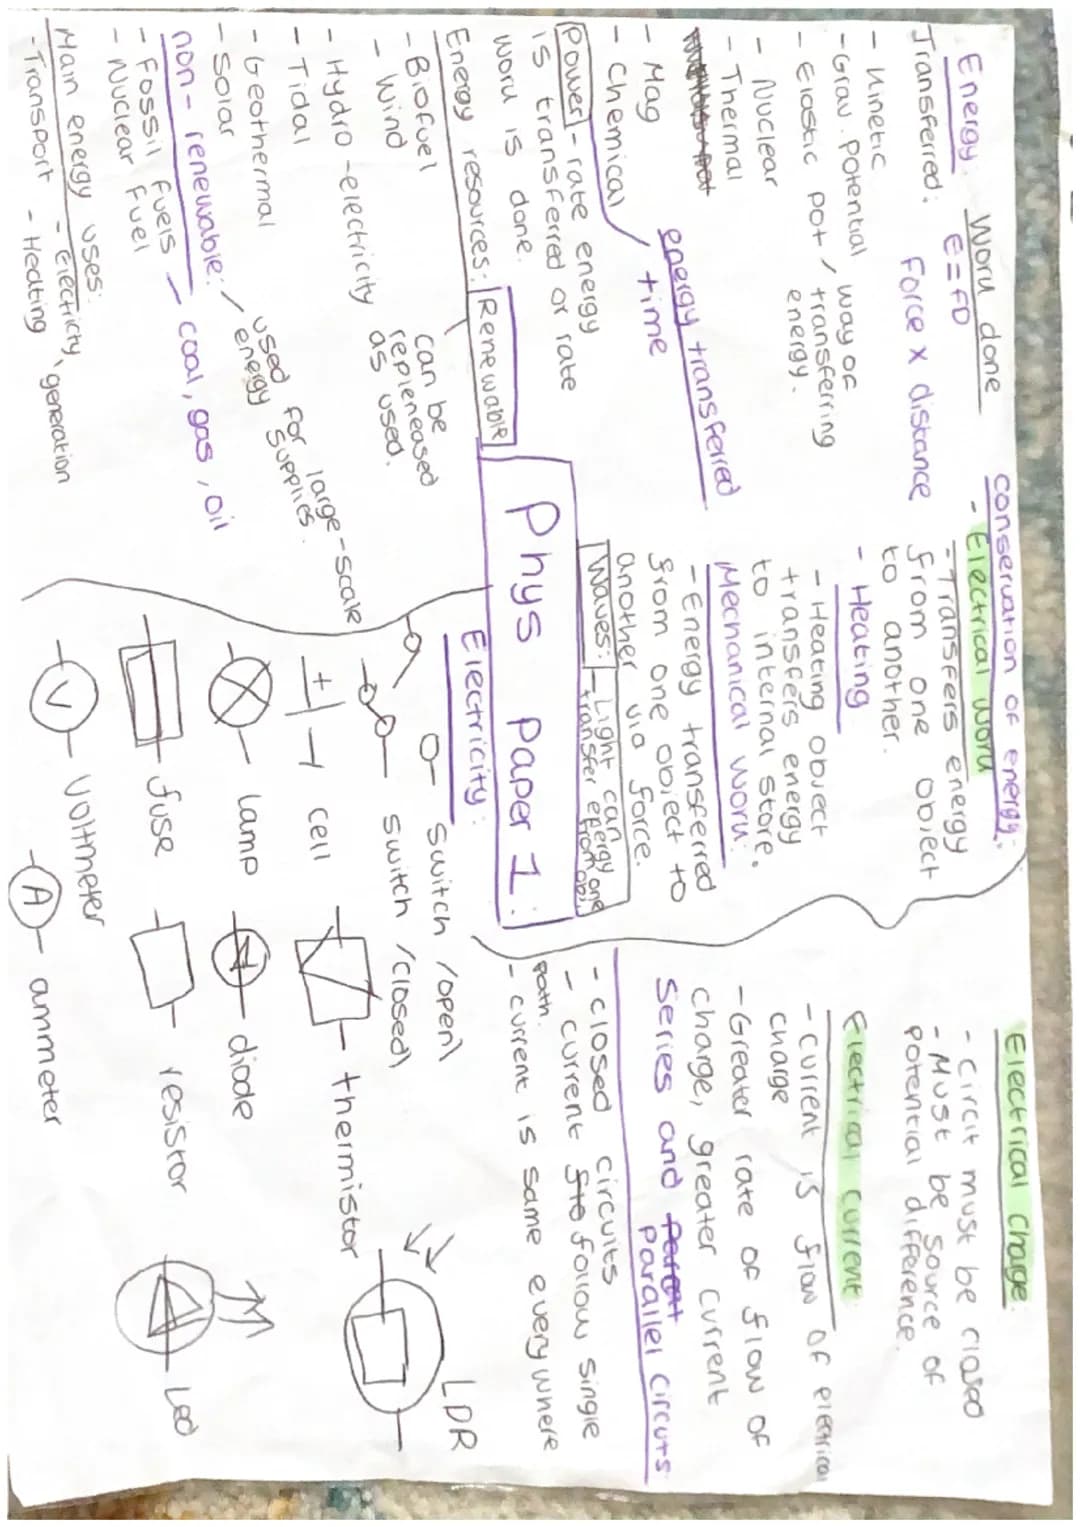 Energy.
Transferred:
- kinetic
- Grav. potential
- Elastic pot
- Nuclear
- Thermal
- Mag
- Chemical
way of
transferring
energy.
Work done
E=FD
Force x distance
energy transferred
time
Power - rate energy
is transferred or rate
work is done.
Energy resources: Renewable
- Biofuel
- Wind
- Hydro-electricity
- Tidal
- Geothermal
- Solar
can be
repleneased
as used.
non-renewable:
used for large-scale
energy supplies.
- Fossil fuels - coal, gas, oil
- Nuclear fuel
Main energy uses:
- Transport
- Electricity generation
- Heating
conservation of energy:
- Electrical work
- Transfers energy
from one object
to another.
- Heating
- Heating object
transfers energy
to internal store.
Mechanical work:
- Energy transferred
from one object to
another via force.
Waves: - Light can
transfer energy
from one obj.
Phys paper 1:
Electrical charge:
- circit must be closed
- Must be source of
potential difference.
Electrical current:
- current is flow of electrical
charge
- Greater rate of flow of
charge, greater current
Series and parallel circuts
- closed circuits
- current follow single
path.
- current is same everywhere
Electricity:
switch /open)
switch /closed)
cell
thermistor
LDR
lamp
diode
fuse
resistor
Led
V
voltmeter
A
ammeter